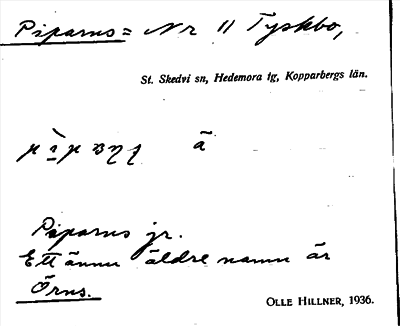 Piparns = Nr 11 Tyskbo,
St. Skedvi sn, Hedemora tg, Kopparbergs län.
ã
Piparns jr.
Ett ännu äldre namn är
Örns.
OLLE HILLNER, 1936.